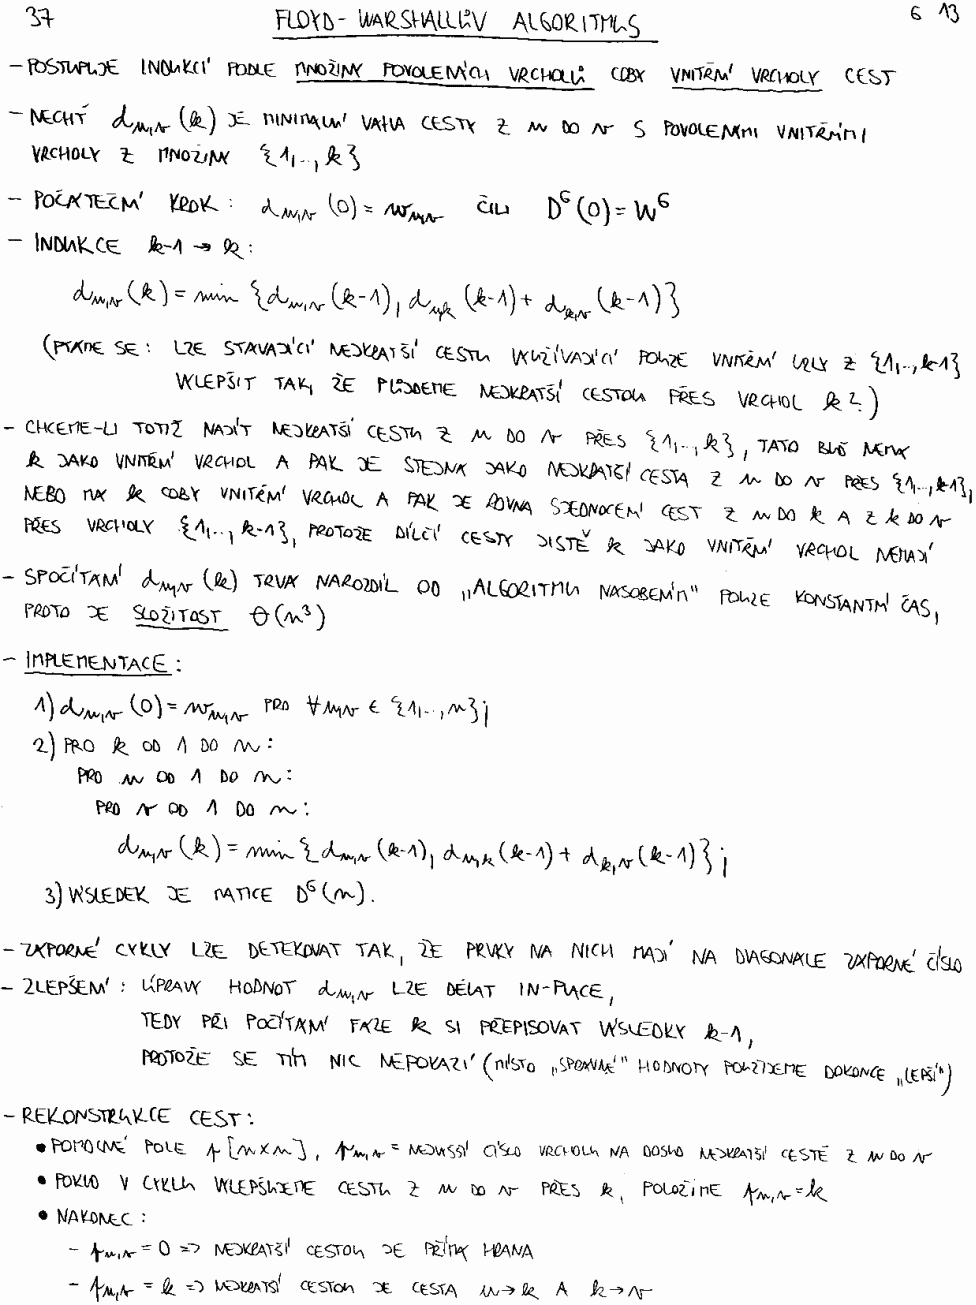 37 FLOYD-WARSHALLŮV ALGORITMUS 6 13
- POSTUPUJE INDUKCÍ PODLE MNOŽINY POVOLENÝCH VRCHOLŮ COBY VNITŘNÍ VRCHOLY CEST
- NECHŤ d_{u,v}(k) JE MINIMÁLNÍ VÁHA CESTY Z u DO v S POVOLENÝMI VNITŘNÍMI
VRCHOLY Z MNOŽINY {1,..,k}
- POČÁTEČNÍ KROK: d_{u,v}(0) = w_{u,v} ČILI D^G(0) = W^G
- INDUKCE k-1 → k:
d_{u,v}(k) = min {d_{u,v}(k-1), d_{u,k}(k-1) + d_{k,v}(k-1)}
(PTÁME SE: LZE STÁVAJÍCÍ NEJKRATŠÍ CESTU VYUŽÍVAJÍCÍ POUZE VNITŘNÍ VRLY Z {1,..,k-1}
VYLEPŠIT TAK, ŽE PŮJDEME NEJKRATŠÍ CESTOU PŘES VRCHOL k?)
- CHCEME-LI TOTIŽ NAJÍT NEJKRATŠÍ CESTU Z u DO v PŘES {1,..,k}, TATO BUĎ NEMÁ
k JAKO VNITŘNÍ VRCHOL A PAK JE STEJNÁ JAKO NEJKRATŠÍ CESTA Z u DO v PŘES {1,..,k-1},
NEBO MÁ k COBY VNITŘNÍ VRCHOL A PAK JE ROVNA SJEDNOCENÍ CEST Z u DO k A Z k DO v
PŘES VRCHOLY {1,..,k-1}, PROTOŽE DÍLČÍ CESTY JISTĚ k JAKO VNITŘNÍ VRCHOL NEMAJÍ
- SPOČÍTÁNÍ d_{u,v}(k) TRVÁ NAROZDÍL OD „ALGORITMU NÁSOBENÍM" POUZE KONSTANTNÍ ČAS,
PROTO JE SLOŽITOST Θ(n³)
- IMPLEMENTACE:
1) d_{u,v}(0) = w_{u,v} PRO ∀u,v ∈ {1,..,n};
2) PRO k OD 1 DO n:
PRO u OD 1 DO n:
PRO v OD 1 DO n:
d_{u,v}(k) = min {d_{u,v}(k-1), d_{u,k}(k-1) + d_{k,v}(k-1)};
3) VÝSLEDEK JE MATICE D^G(n).
- ZÁPORNÉ CYKLY LZE DETEKOVAT TAK, ŽE PRVKY NA NICH MAJÍ NA DIAGONÁLE ZÁPORNÉ ČÍSLO
- ZLEPŠENÍ: ÚPRAVY HODNOT d_{u,v} LZE DĚLAT IN-PLACE,
TEDY PŘI POČÍTÁNÍ FÁZE k SI PŘEPISOVAT VÝSLEDKY k-1,
PROTOŽE SE TÍM NIC NEPOKAZÍ (MÍSTO „SPRÁVNÉ" HODNOTY POUŽIJEME DOKONCE „LEPŠÍ")
- REKONSTRUKCE CEST:
• POMOCNÉ POLE p[n×n], p_{u,v} = NEJVYŠŠÍ ČÍSLO VRCHOLU NA DOSUD NEJKRATŠÍ CESTĚ Z u DO v
• POKUD V CYKLU VYLEPŠUJEME CESTU Z u DO v PŘES k, POLOŽÍME p_{u,v} = k
• NAKONEC:
- p_{u,v} = 0 => NEJKRATŠÍ CESTOU JE PŘÍMÁ HRANA
- p_{u,v} = k => NEJKRATŠÍ CESTOU JE CESTA u→k A k→v